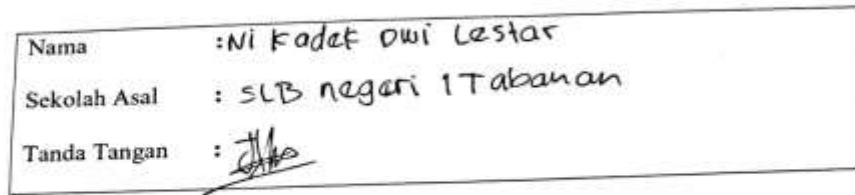 Nama :Ni Kadek Dwi Lestar
Sekolah Asal : SLB negeri 1 Tabanan
Tanda Tangan :